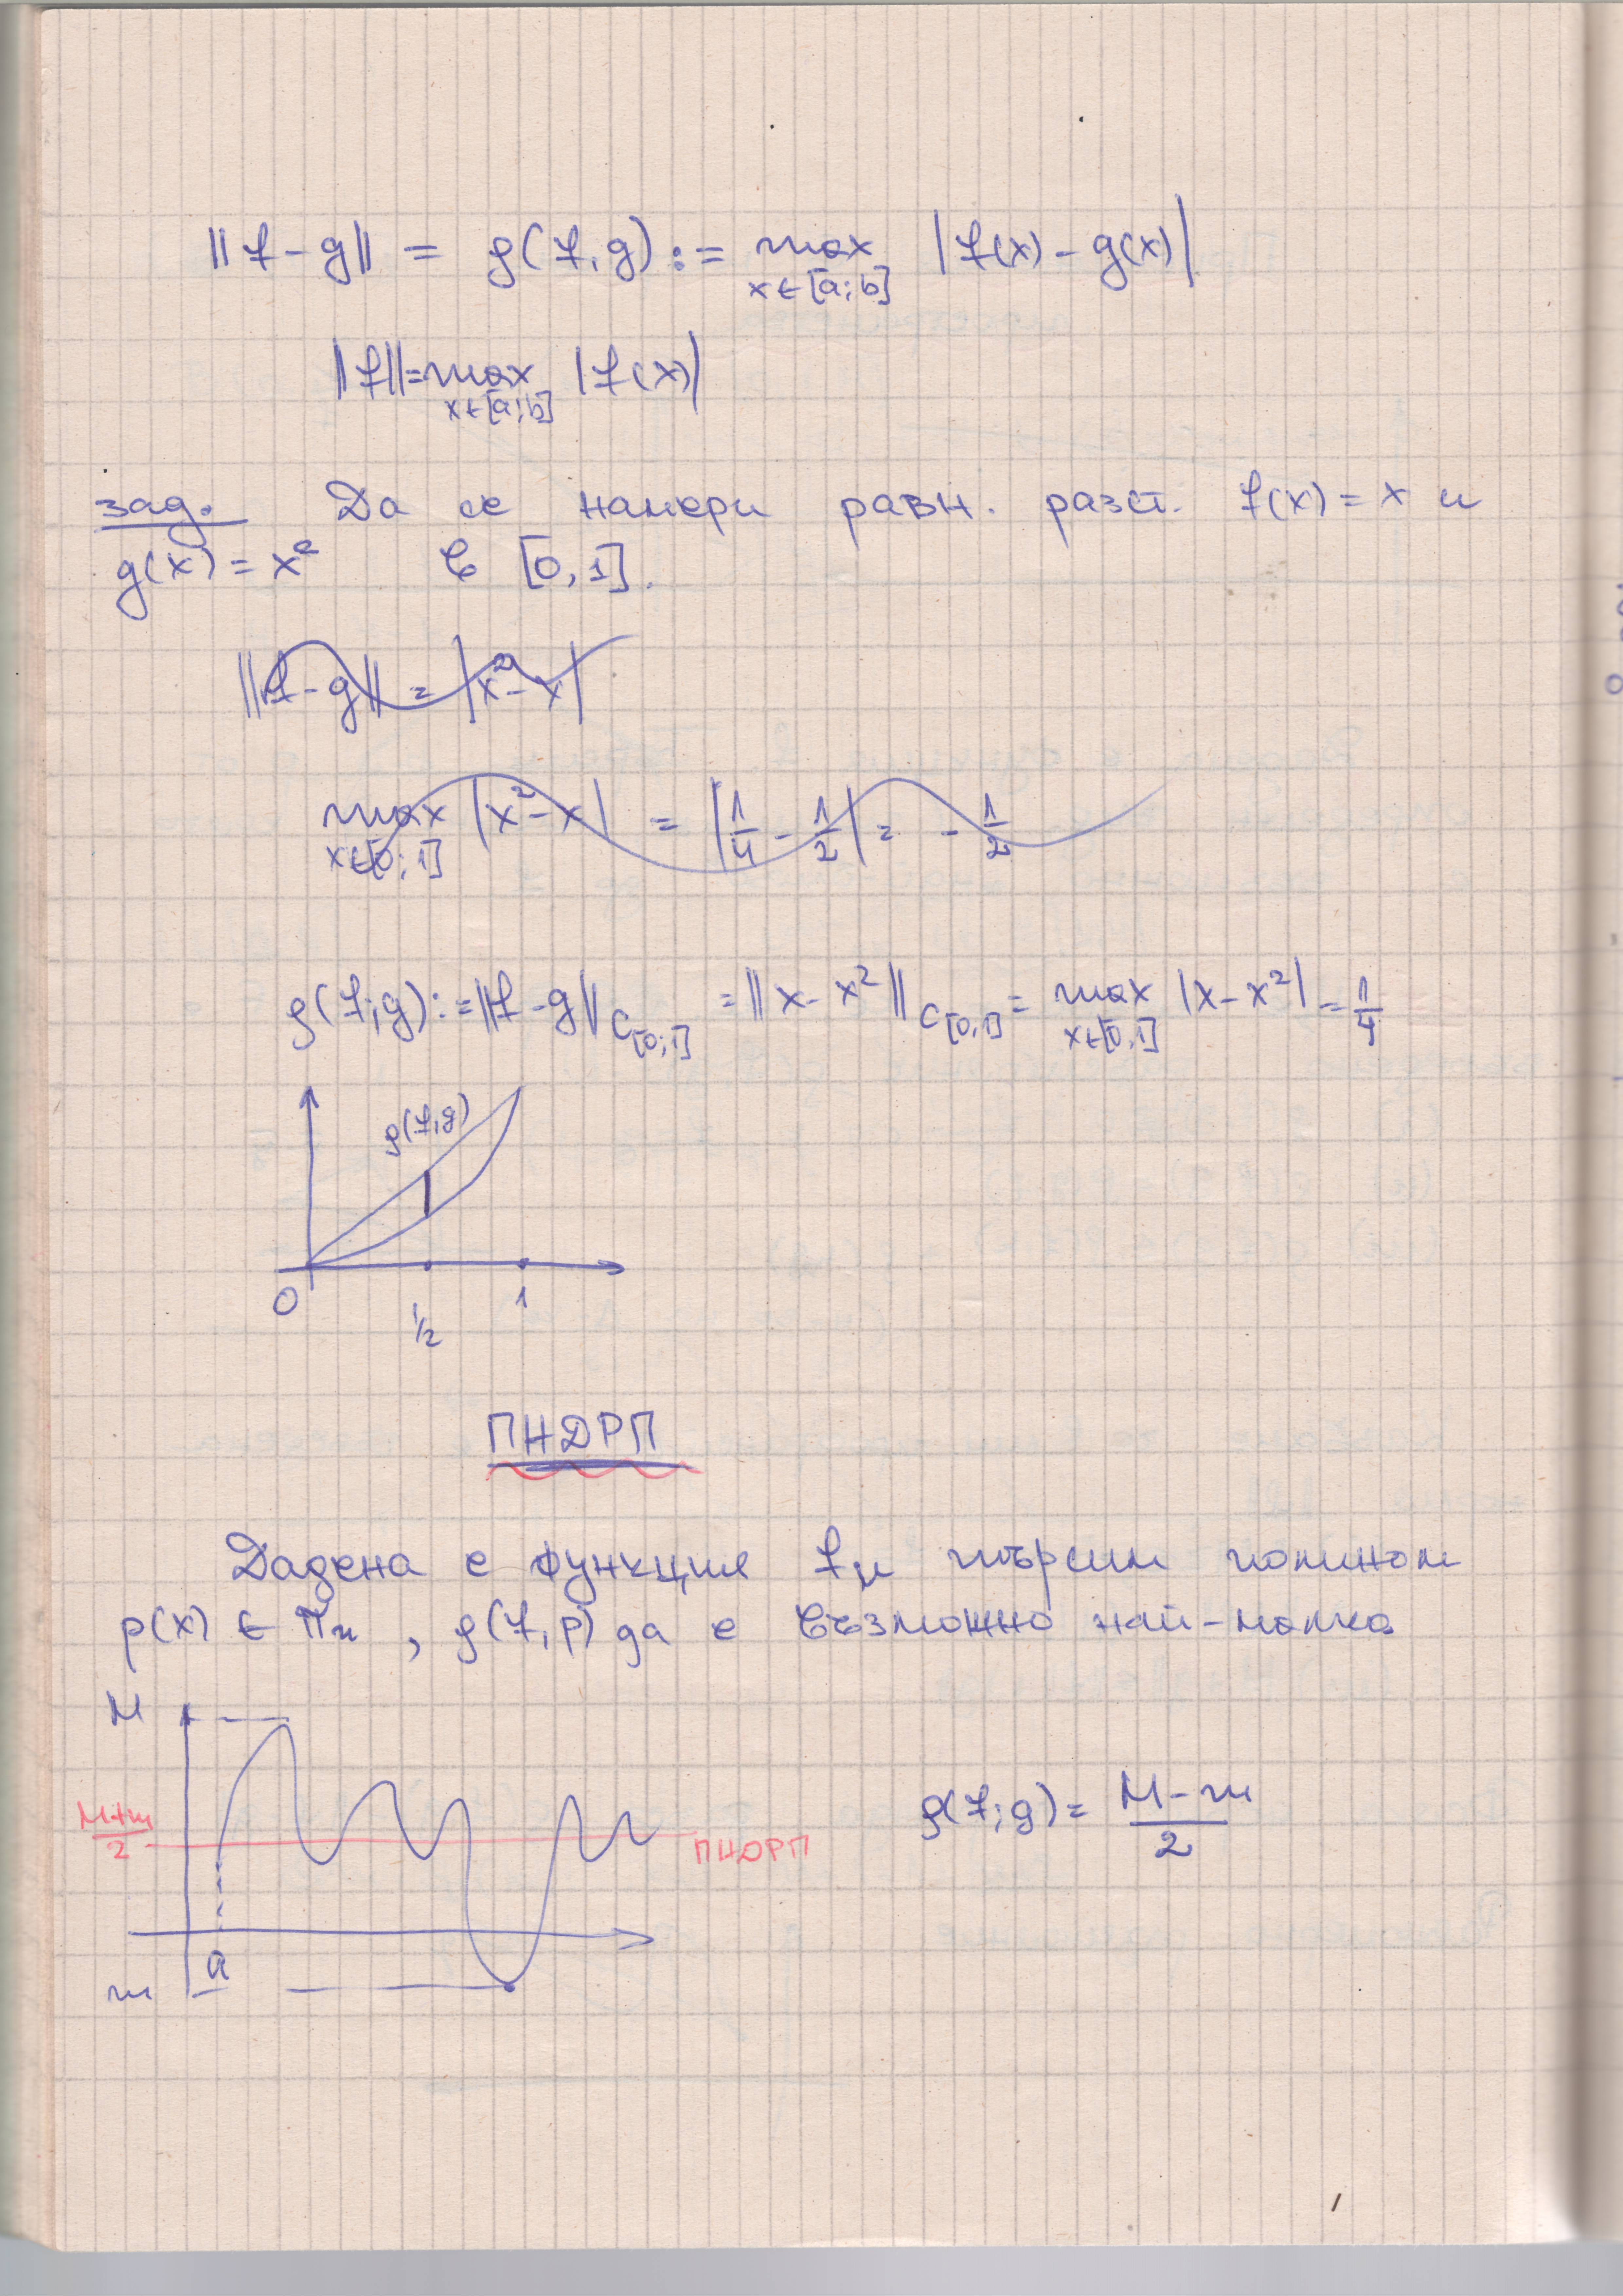 ||f - g|| = ρ(f, g) := max |f(x) - g(x)|
x∈[a;b]
||f|| = max |f(x)|
x∈[a;b]
зад. Да се намери равн. разст. f(x) = x и
g(x) = x² в [0,1].
||f - g|| = |x² - x|
max |x² - x| = |1/4 - 1/2| = - 1/2
x∈[0;1]
ρ(f;g) := ||f - g|| C[0;1] = ||x - x²|| C[0,1] = max |x - x²| = 1/4
x∈[0,1]
ρ(f,g)
0 1/2 1
ПНДРП
Дадена е функция f и търсим полином
p(x) ∈ πn , ρ(f,p) да е възможно най-малко
M
M+m/2 ПНДРП
ρ(f;g) = M-m/2
a
m